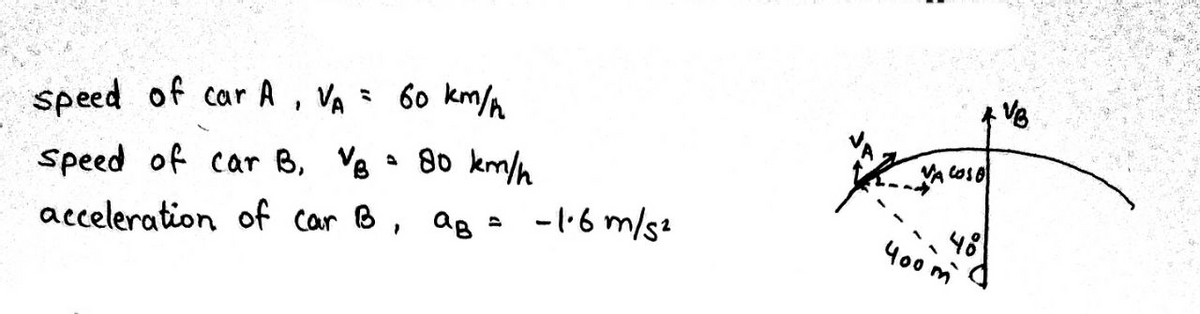 speed of car A , VA = 60 km/h
speed of car B, VB = 80 km/h
acceleration of car B , aB = -1.6 m/s²
VB
VA
VA cosθ
40°
400 m